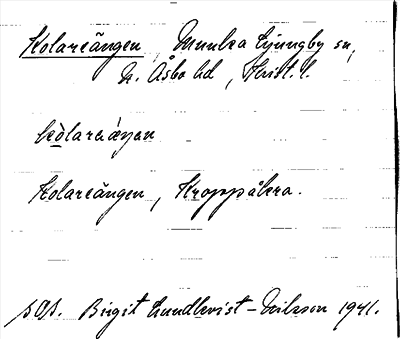 Kolareängen, Munka Ljungby sn,
N. Åsbo hd, Krist. l.
Kolareängen, Kroppåkra.
Birgit Lundkvist-Eriksson 1941.